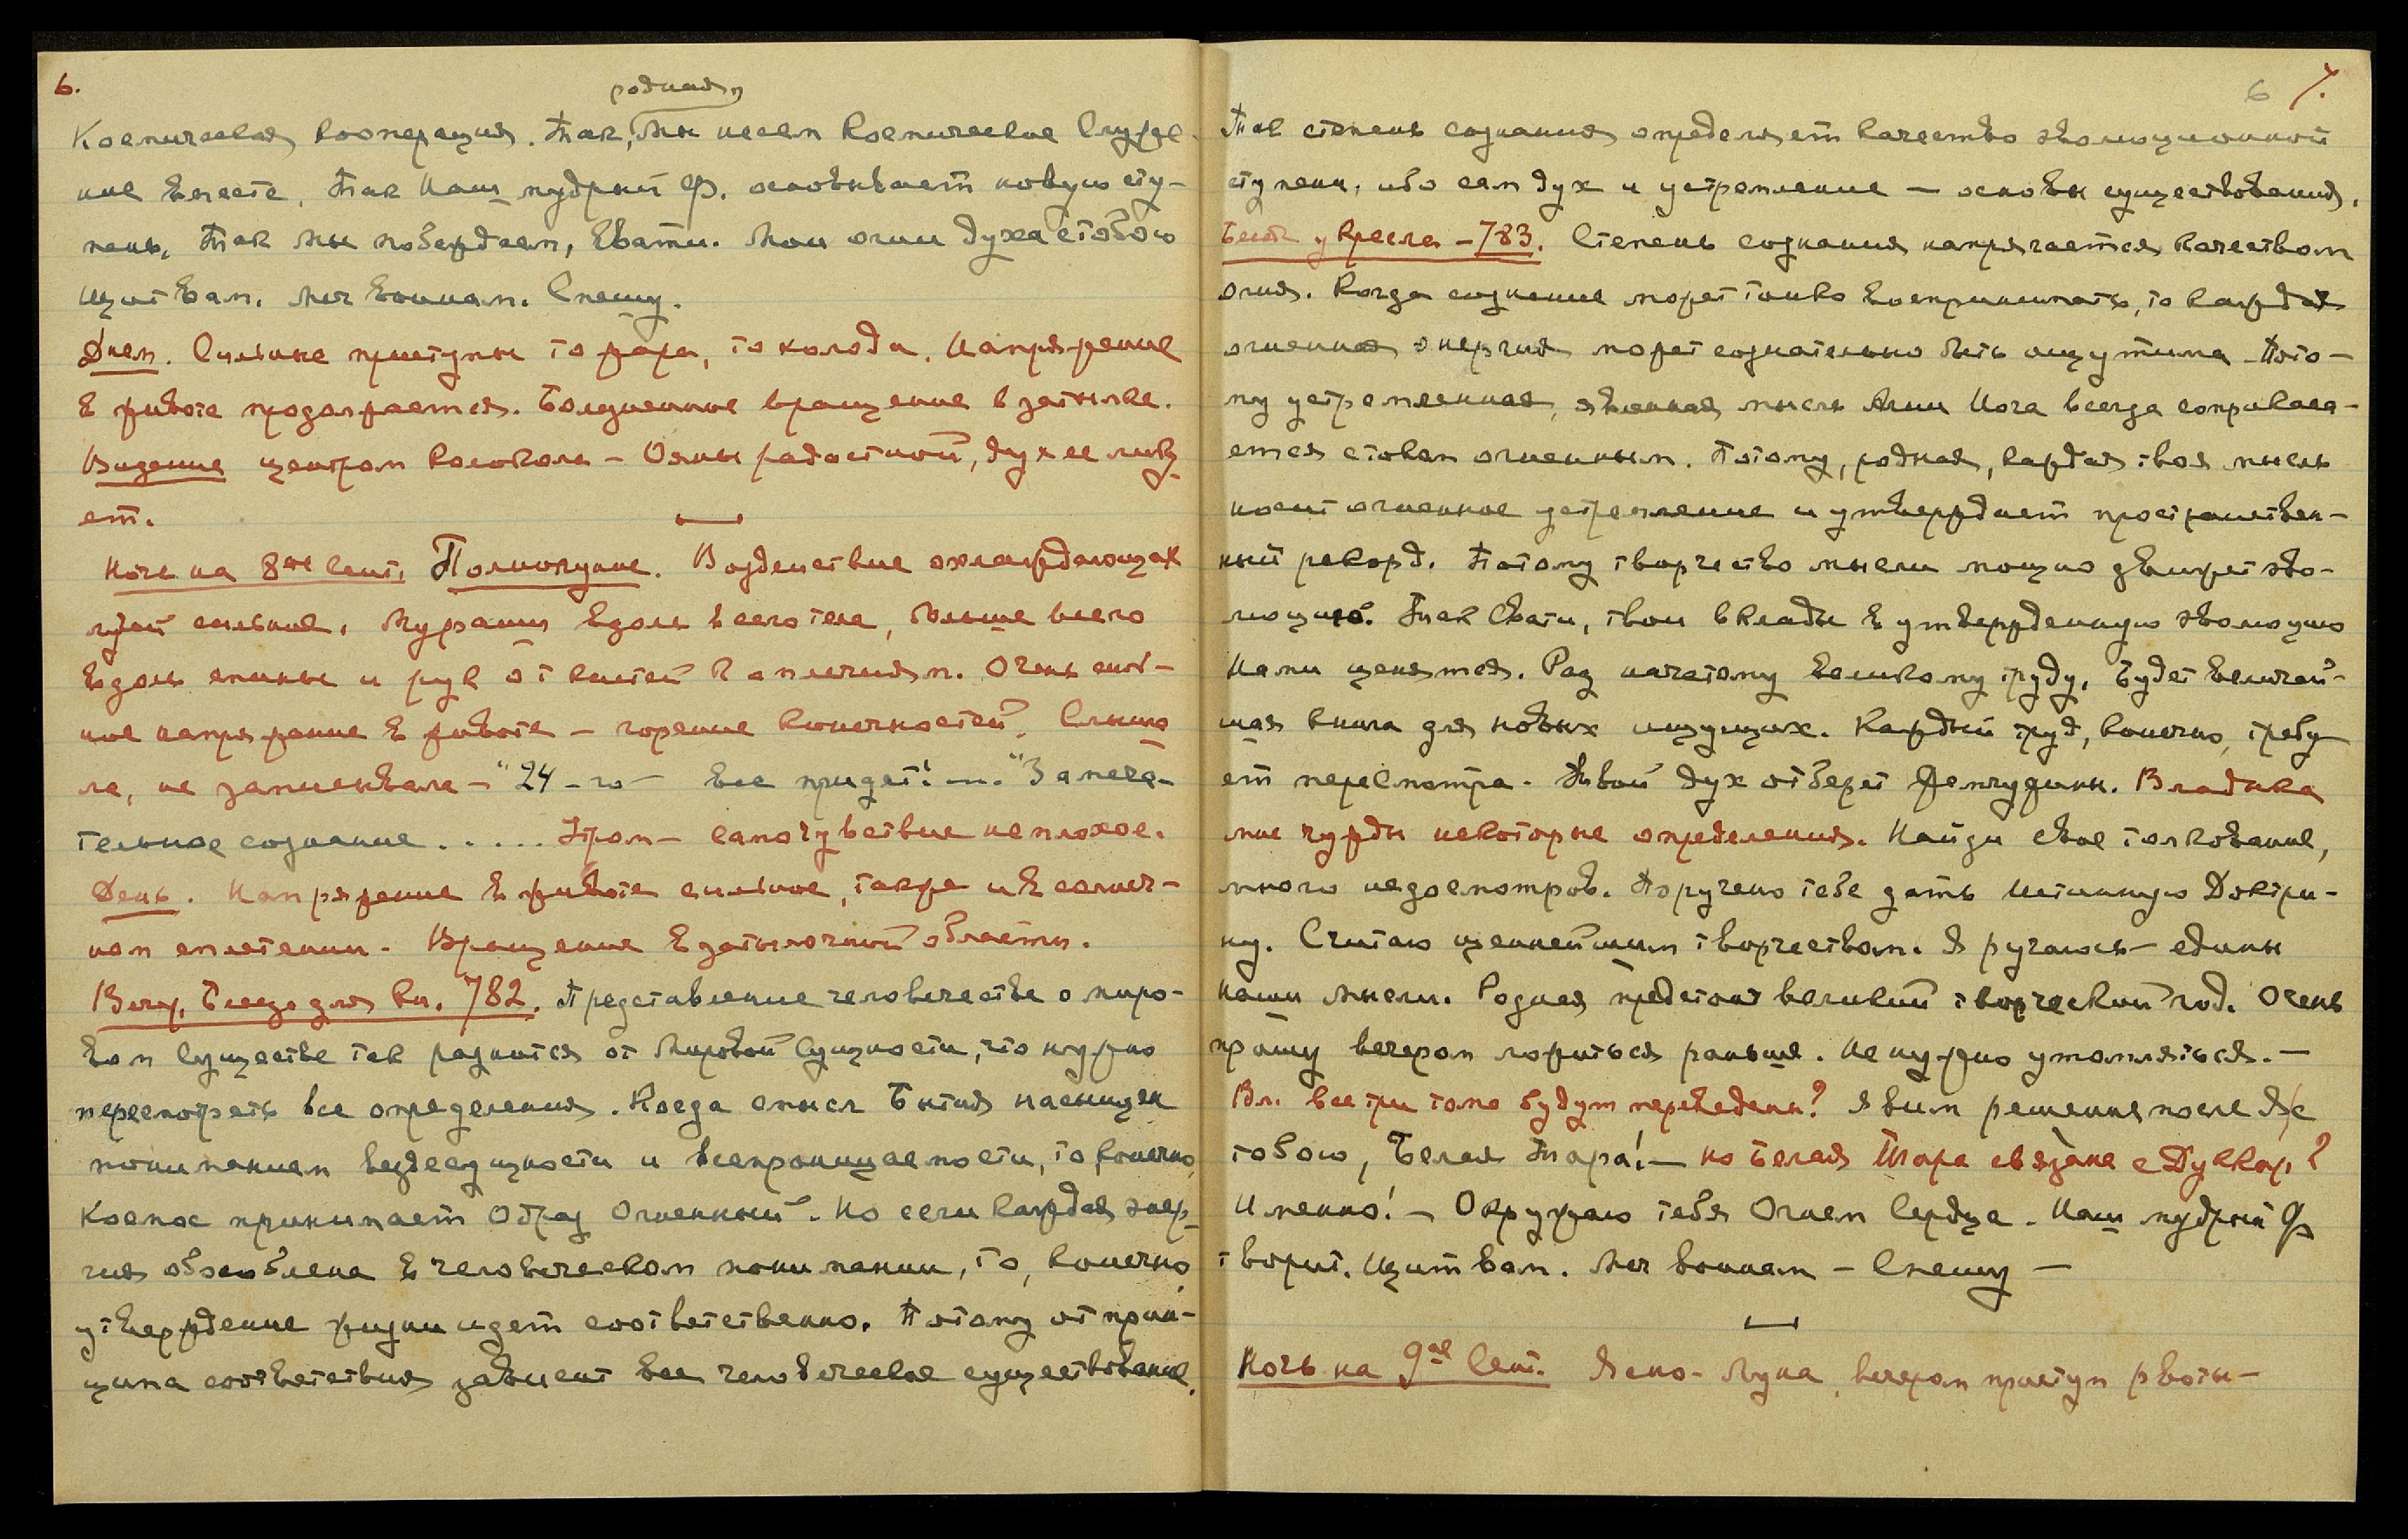 6.
родная,
Космическая кооперация. Так, Мы несем Космическое Служе-
ние вместе. Так Наш мудрый Ф. основывает новую сту-
пень. Так Мы победдаем, Свати. Мои огни духа с тобою
Щит вам. Меч воинам. Спешу.
Днем. Сильные приступы то жара, то холода. Напряжение
в животе продолжается. Болезненное вращение в затылке.
Видение центром колокола – Ояны радостной, дух ее лику-
ет.
Ночь на 8ое Сент. Полнолуние. Воздействие охлаждающих
лучей сильное. Мурашки вдоль всего тела, больше всего
вдоль спины и рук от кистей к оплечиям. Очень силь-
ное напряжение в животе – горение конечностей. Слыша-
ла, не записывала – "24-го – все придет! –. "Замеча-
тельное сознание ..... Утром – самочувствие неплохое.
День. Напряжение в животе сильное, также и в солнеч-
ном сплетении. Вращение в затылочной области.
Веч. Беседа для кн. 782. Представление человечества о миро-
вом Существе так разнится от Мировой Сущности, что нужно
пересмотреть все определения. Когда смысл Бытия насыщен
пониманием вездесущности и всепроницаемости, то, конечно,
Космос принимает Образ Огненный. Но если каждая энер-
гия обособлена в человеческом понимании, то, конечно,
утверждение жизни идет соответственно. Потому от прин-
ципа соответствия зависит все человеческое существование.
6 7.
Так степень сознания определяет качество эволюционной
ступени, ибо сам дух и устремление – основы существования.
Бес. у кресла – 783. Степень сознания напрягается качеством
огня. Когда сознание может тонко воспринимать, то каждая
огненная энергия может сознательно быть ощутима. Пото-
му устремленная, явленная мысль Агни Йога всегда соприкаса-
ется с тобою огненным. Потому, родная, каждая твоя мысль
носит огненное устремление и утверждает пространствен-
ный рекорд. Потому творчество мысли мощно движет эво-
люцию. Так Свати, твои вклады в утвержденную эволюцию
Нами ценятся. Рад начатому великому труду, будет величай-
шая книга для новых ищущих. Каждый труд, конечно, требу-
ет пересмотра. Твой дух отберет Жемчужины. Владыка
мне чужды некоторые определения. Найди свое толкование,
много недосмотров. Поручено тебе дать Истинную Доктри-
ну. Считаю ценнейшим творчеством. Я ручаюсь – едины
наши мысли. Родная предстоит великий творческий год. Очень
прошу вечером ложиться раньше. Не нужно утомляться. –
Вл. все три тома будут переведены? Явим решение после Я с
тобою, Белая Тара! – но Белая Тара связана с Дуккар?
Именно! – Окружаю тебя Огнем Сердца. Наш мудрый Ф
творит. Щит вам. Меч воинам – Спешу –
Ночь на 9ое Сент. Ясно – Луна, вечером приступ рвоты –